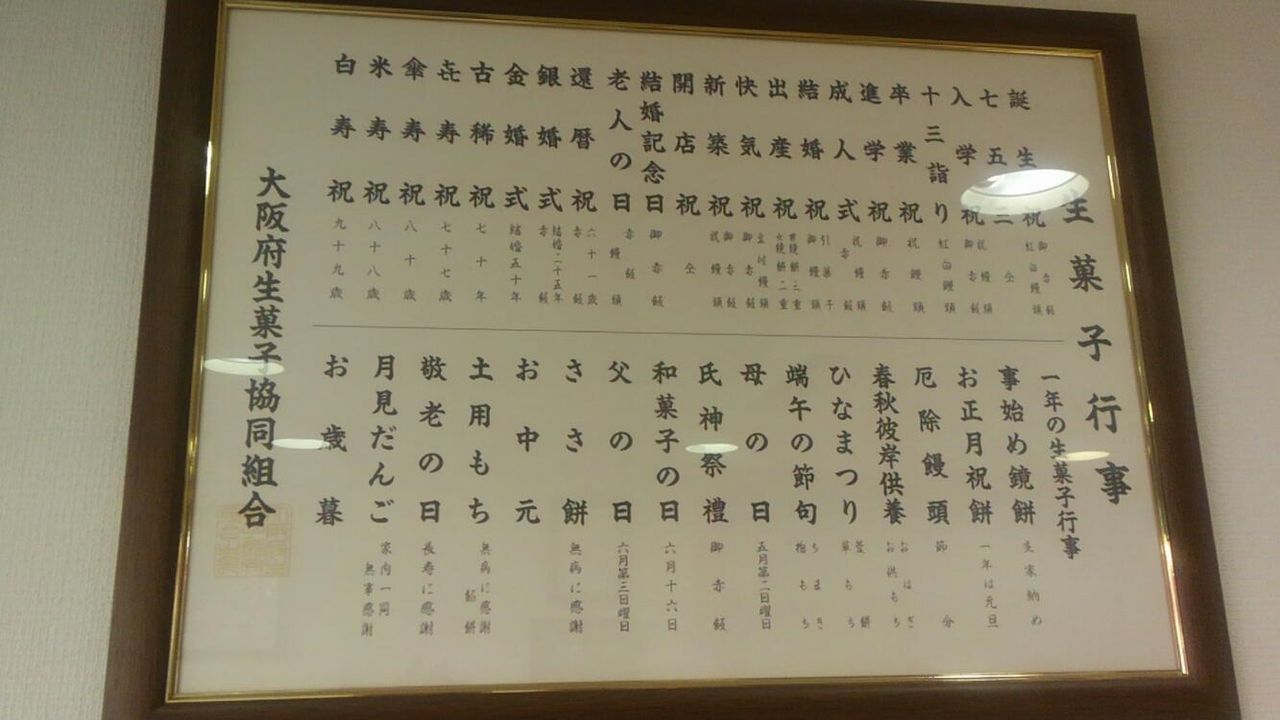 生菓子行事
誕生祝 御赤飯 紅白饅頭
七五三 仝
入学祝 祝饅頭 御赤飯
十三詣り 紅白饅頭
卒業祝 祝饅頭
進学祝 御赤飯
成人式 祝饅頭 赤飯
結婚祝 引菓子 御饅頭
出産祝 男鏡餅三重 女鏡餅二重
快気祝 立河饅頭 御赤飯
新築祝 御赤飯 祝饅頭
開店祝 仝
結婚記念日 御赤飯
老人の日 赤飯 饅頭
還暦祝 六十一歳 赤飯
銀婚式 結婚二十五年 赤飯
金婚式 結婚五十年
古稀祝 七十年
㐂寿祝 七十七歳
傘寿祝 八十歳
米寿祝 八十八歳
白寿祝 九十九歳
一年の生菓子行事
事始め鏡餅 生家納め
お正月祝餅 一年は元旦
厄除饅頭 節分
春秋彼岸供養 おはぎ お供もち
ひなまつり 菱餅 草もち
端午の節句 ちまき 柏もち
母の日 五月第二日曜日
氏神祭禮 御赤飯
和菓子の日 六月十六日
父の日 六月第三日曜日
ささ餅 無病に感謝
お中元
土用もち 無病に感謝 餡餅
敬老の日 長寿に感謝
月見だんご 家内一同 無事感謝
お歳暮
大阪府生菓子協同組合